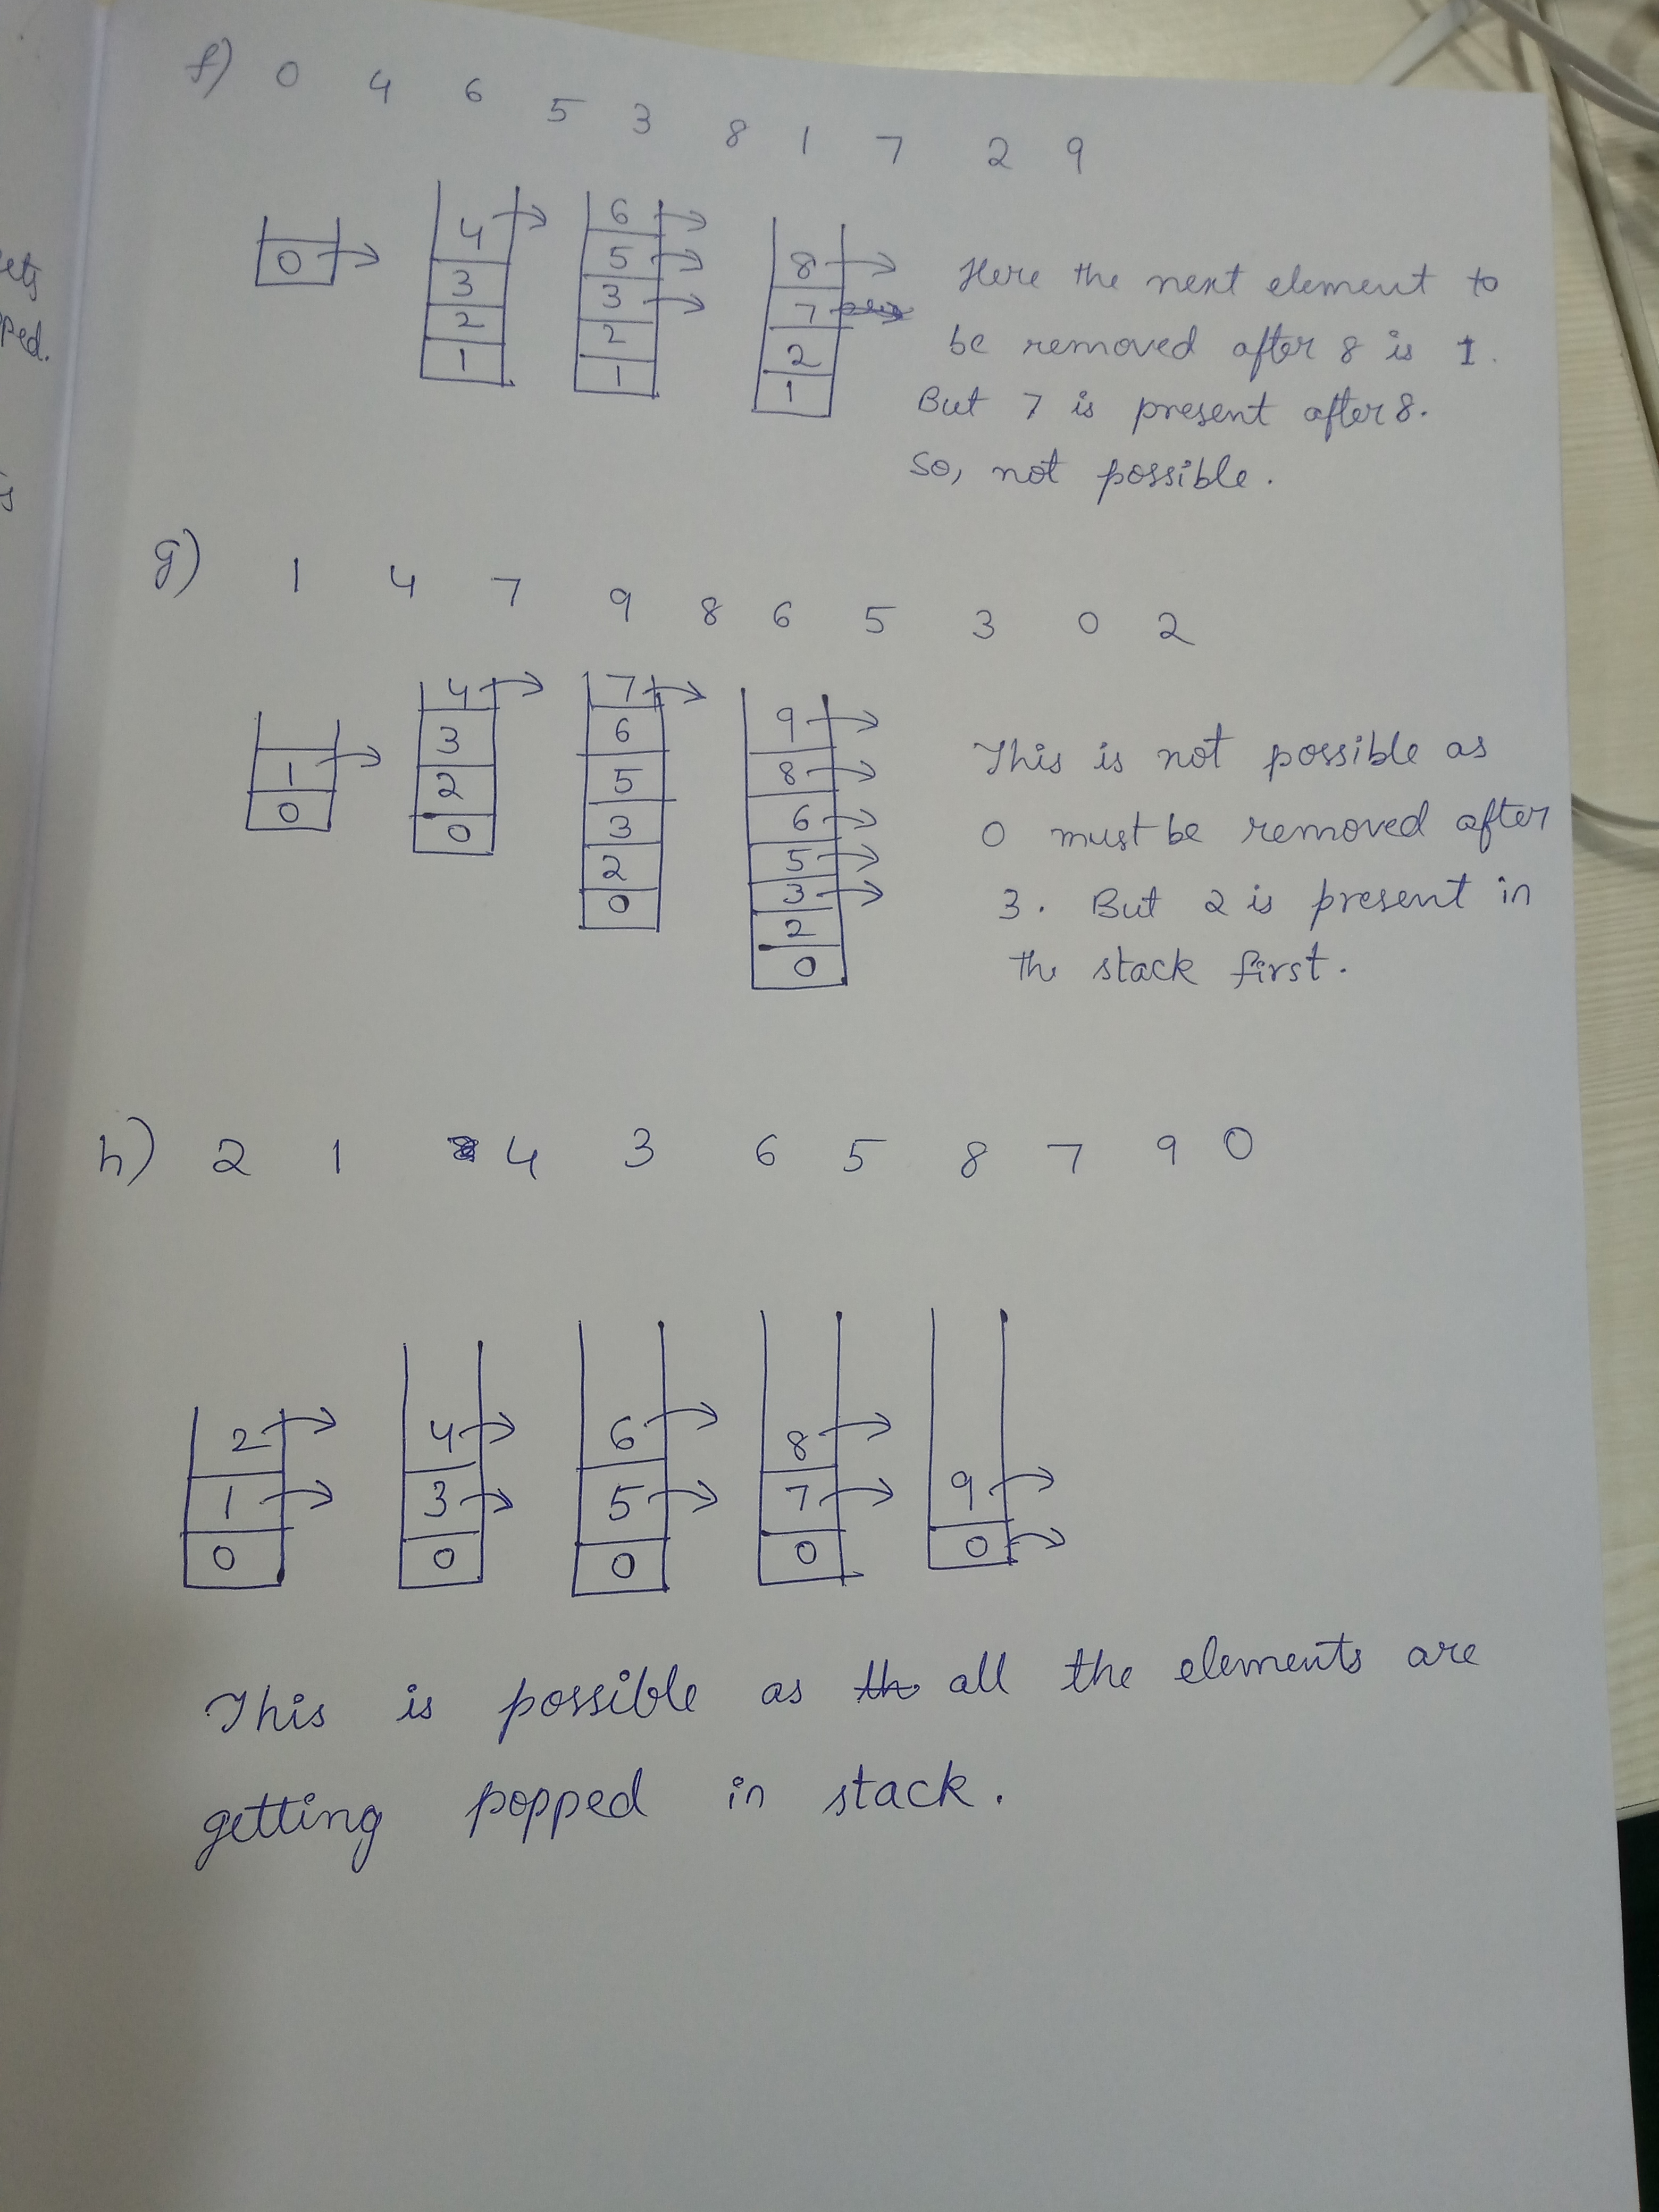 f) 0 4 6 5 3 8 1 7 2 9
0
4
3
2
1
6
5
3
2
1
8
7
2
1
Here the next element to
be removed after 8 is 1.
But 7 is present after 8.
So, not possible.
g) 1 4 7 9 8 6 5 3 0 2
1
0
4
3
2
0
7
6
5
3
2
0
9
8
6
5
3
2
0
This is not possible as
0 must be removed after
3. But 2 is present in
the stack first.
h) 2 1 4 3 6 5 8 7 9 0
2
1
0
4
3
0
6
5
0
8
7
0
9
0
This is possible as all the elements are
getting popped in stack.